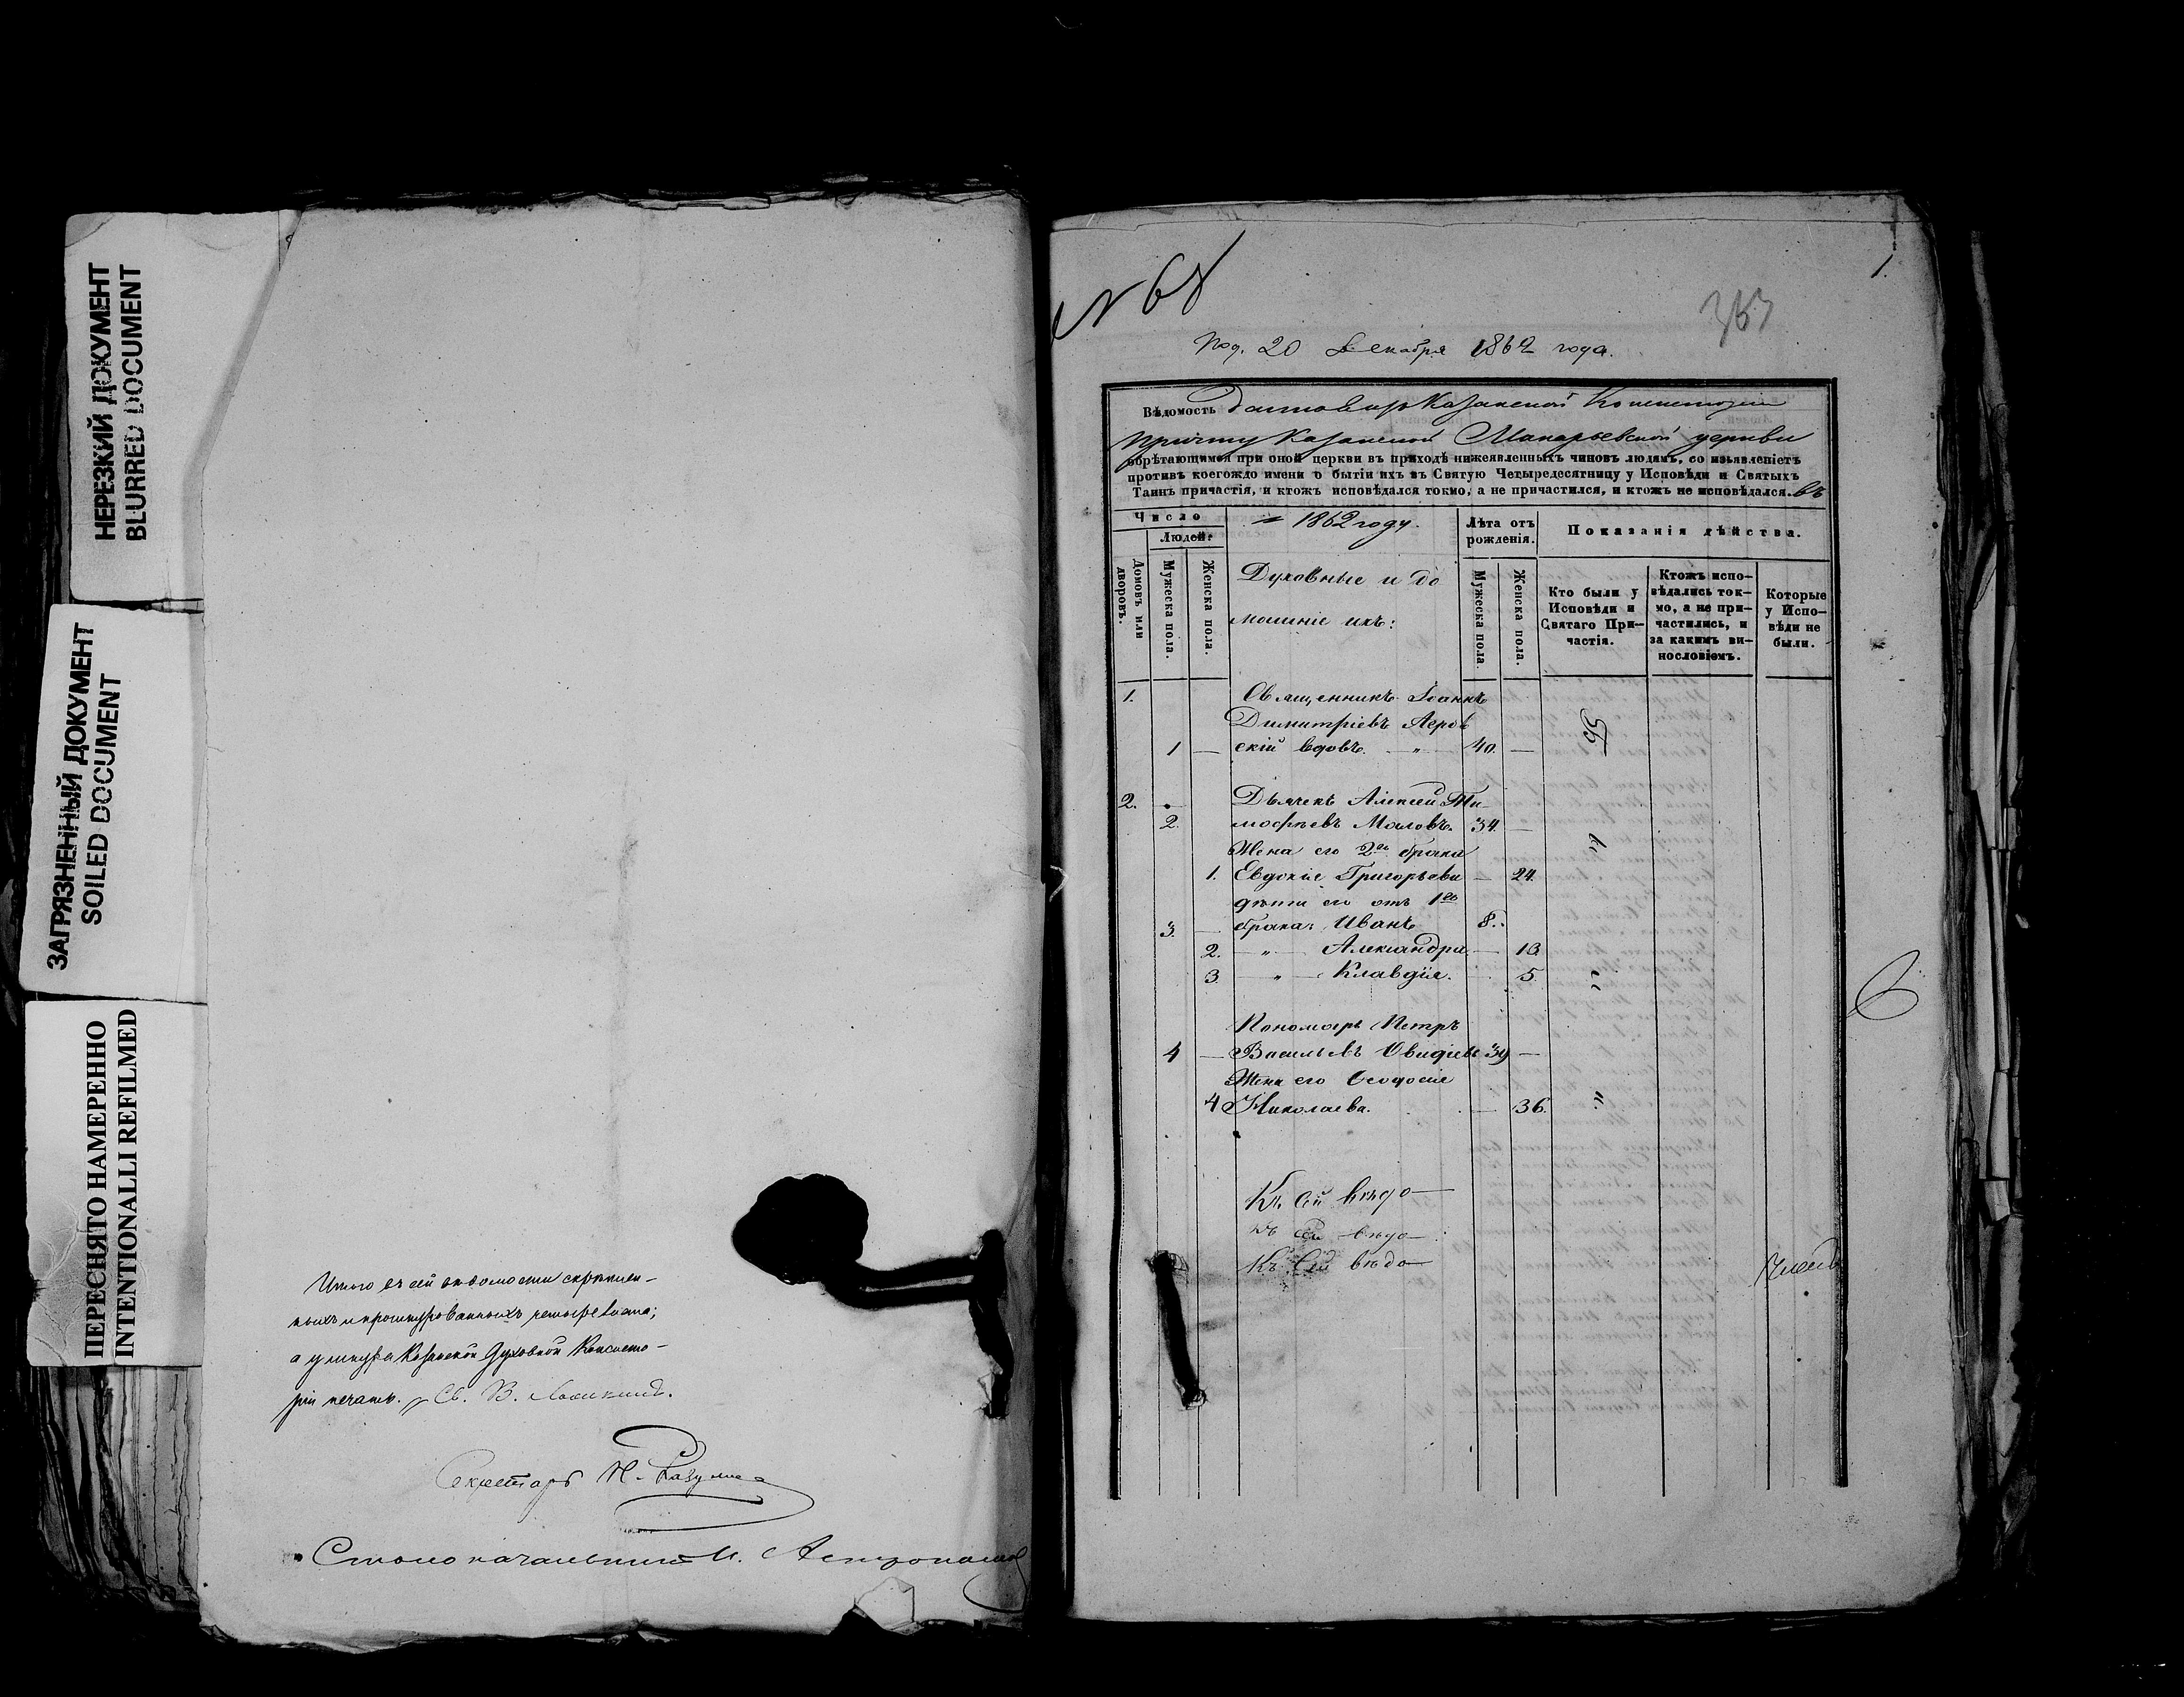 НЕРЕЗКИЙ ДОКУМЕНТ
BLURRED DOCUMENT
ЗАГРЯЗНЕННЫЙ ДОКУМЕНТ
SOILED DOCUMENT
ПЕРЕСНЯТО НАМЕРЕННО
INTENTIONALLI REFILMED
Итого въ сей вѣдомости скрѣплен-
ныхъ и прошнурованныхъ четыре листа;
а у шнура Казанской Духовной Консисто-
ріи печать. Св. В.
Секретарь Н. Разумовъ
Столоначальникъ
1.
N 68
363
Под. 20 Декабря 1862 года.
Вѣдомость Дана изъ Казанской Консисторіи
причту Казанской Макарьевской церкви
обрѣтающимся при оной церкви въ приходѣ нижеявленныхъ чиновъ людямъ, со изъявленіемъ
противъ коегождо имени о бытіи ихъ въ Святую Четыредесятницу у Исповѣди и Святыхъ
Таинъ причастія, и ктожъ исповѣдался токмо, а не причастился, и ктожъ не исповѣдался. въ
Число
1862 году.
Лѣта отъ рожденія.
Показанія дѣйства.
Людей:
Домовъ или дворовъ.
Мужеска пола.
Женска пола.
Духовные и до
машніе ихъ:
Мужеска пола.
Женска пола.
Кто были у Исповѣди и Святаго При-частія.
Ктожъ испо-вѣдались ток-мо, а не при-частились, и за какимъ ви-нословіемъ.
Которые у Испо-вѣди не были.
1. Священникъ Іоаннъ
Димитріевъ Аеров
1 — скій вдовъ. " 40. —
2. Дьячекъ Алексѣй Ти-
2. мофѣевъ Маловъ. 34. —
Жена его 2го брака
1. Евдокія Григорьева — 24.
дѣти его отъ 1го
3. — брака: Иванъ 8.
2. — " — Александра — 13
3. " Клавдія. 5.
Пономарь Петръ
4 — Васильевъ Овидіевъ 39 —
Жена его Ѳеодосія
4 Николаева. — 36.
Къ сей вѣдо—
Къ сей вѣдо—
Къ сей вѣдо—